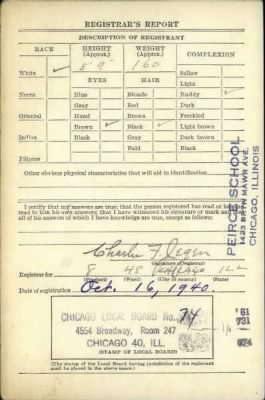 REGISTRAR'S REPORT
DESCRIPTION OF REGISTRANT
RACE HEIGHT (Approx.) WEIGHT (Approx.) COMPLEXION
5 9 160
White ✓ Sallow
EYES HAIR Light
Negro Blue Blonde Ruddy ✓
Gray Red Dark
Oriental Hazel Brown Freckled
Brown ✓ Black ✓ Light brown
Indian Black Gray Dark brown
Bald Black
Filipino
Other obvious physical characteristics that will aid in identification
I certify that my answers are true; that the person registered has read or has had
read to him his own answers; that I have witnessed his signature or mark and that
all of his answers of which I have knowledge are true, except as follows:
Charles F
(Signature of registrar)
Registrar for 8 48 CHICAGO ILL
(Precinct) (Ward) (City or county) (State)
Date of registration Oct. 16, 1940.
CHICAGO LOCAL BOARD No. 74
4554 Broadway, Room 247
CHICAGO 40, ILL.
(STAMP OF LOCAL BOARD)
(The stamp of the Local Board having jurisdiction of the registrant
shall be placed in the above space.)
PEIRCE SCHOOL
1423 BRYN MAWR AVE.
CHICAGO, ILLINOIS
731